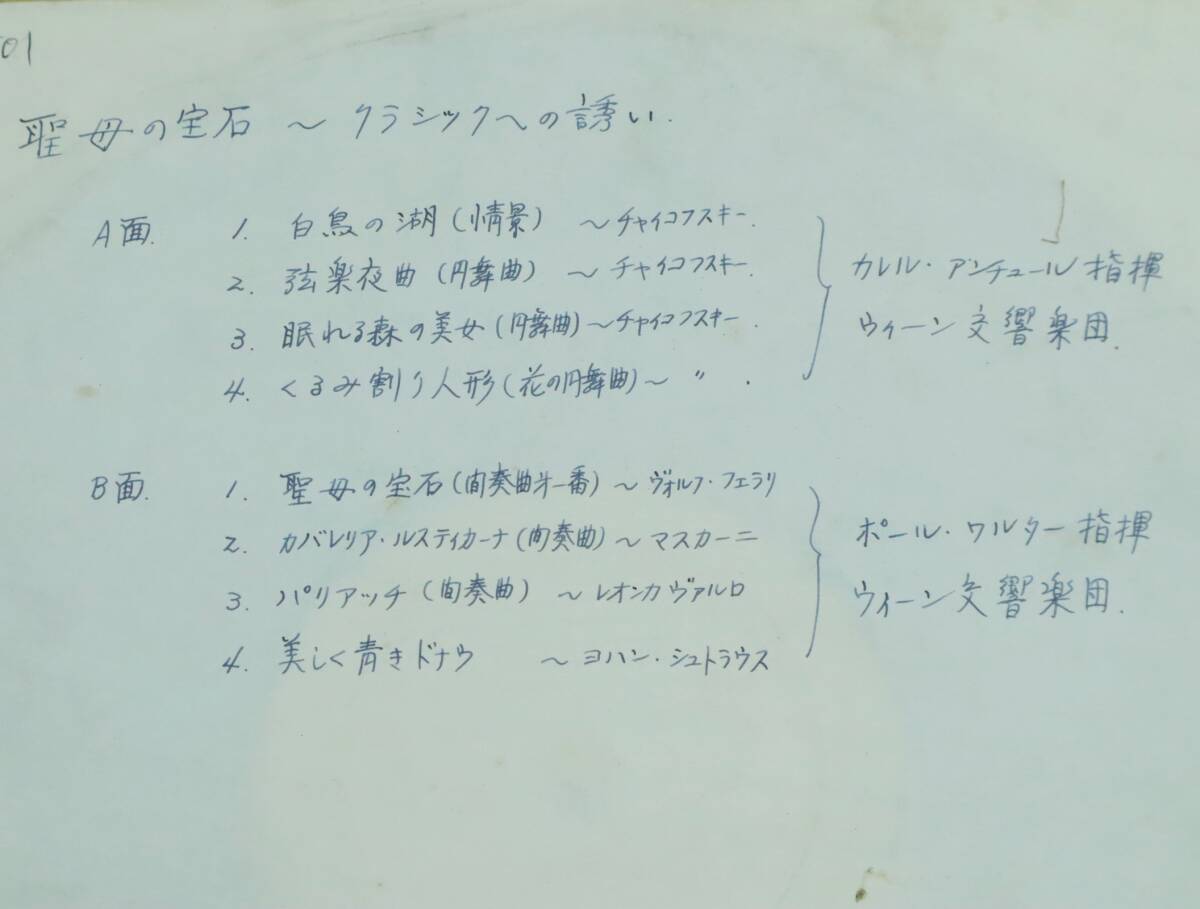 01
聖母の宝石 ～ クラシックへの誘い.
A面. 1. 白鳥の湖(情景) ～チャイコフスキー.
2. 弦楽夜曲(円舞曲) ～チャイコフスキー.
カレル・アンチュール指揮
3. 眠れる森の美女(円舞曲)～チャイコフスキー.
ウィーン交響楽団.
4. くるみ割り人形(花の円舞曲)～ 〃 .
B面. 1. 聖母の宝石(間奏曲㐧一番)～ヴォルフ・フェラリ
2. カバレリア・ルスティカーナ(間奏曲)～マスカーニ
ポール・ワルター指揮
3. パリアッチ(間奏曲) ～レオンカヴァルロ
ウィーン交響楽団.
4. 美しく青きドナウ ～ヨハン・シュトラウス